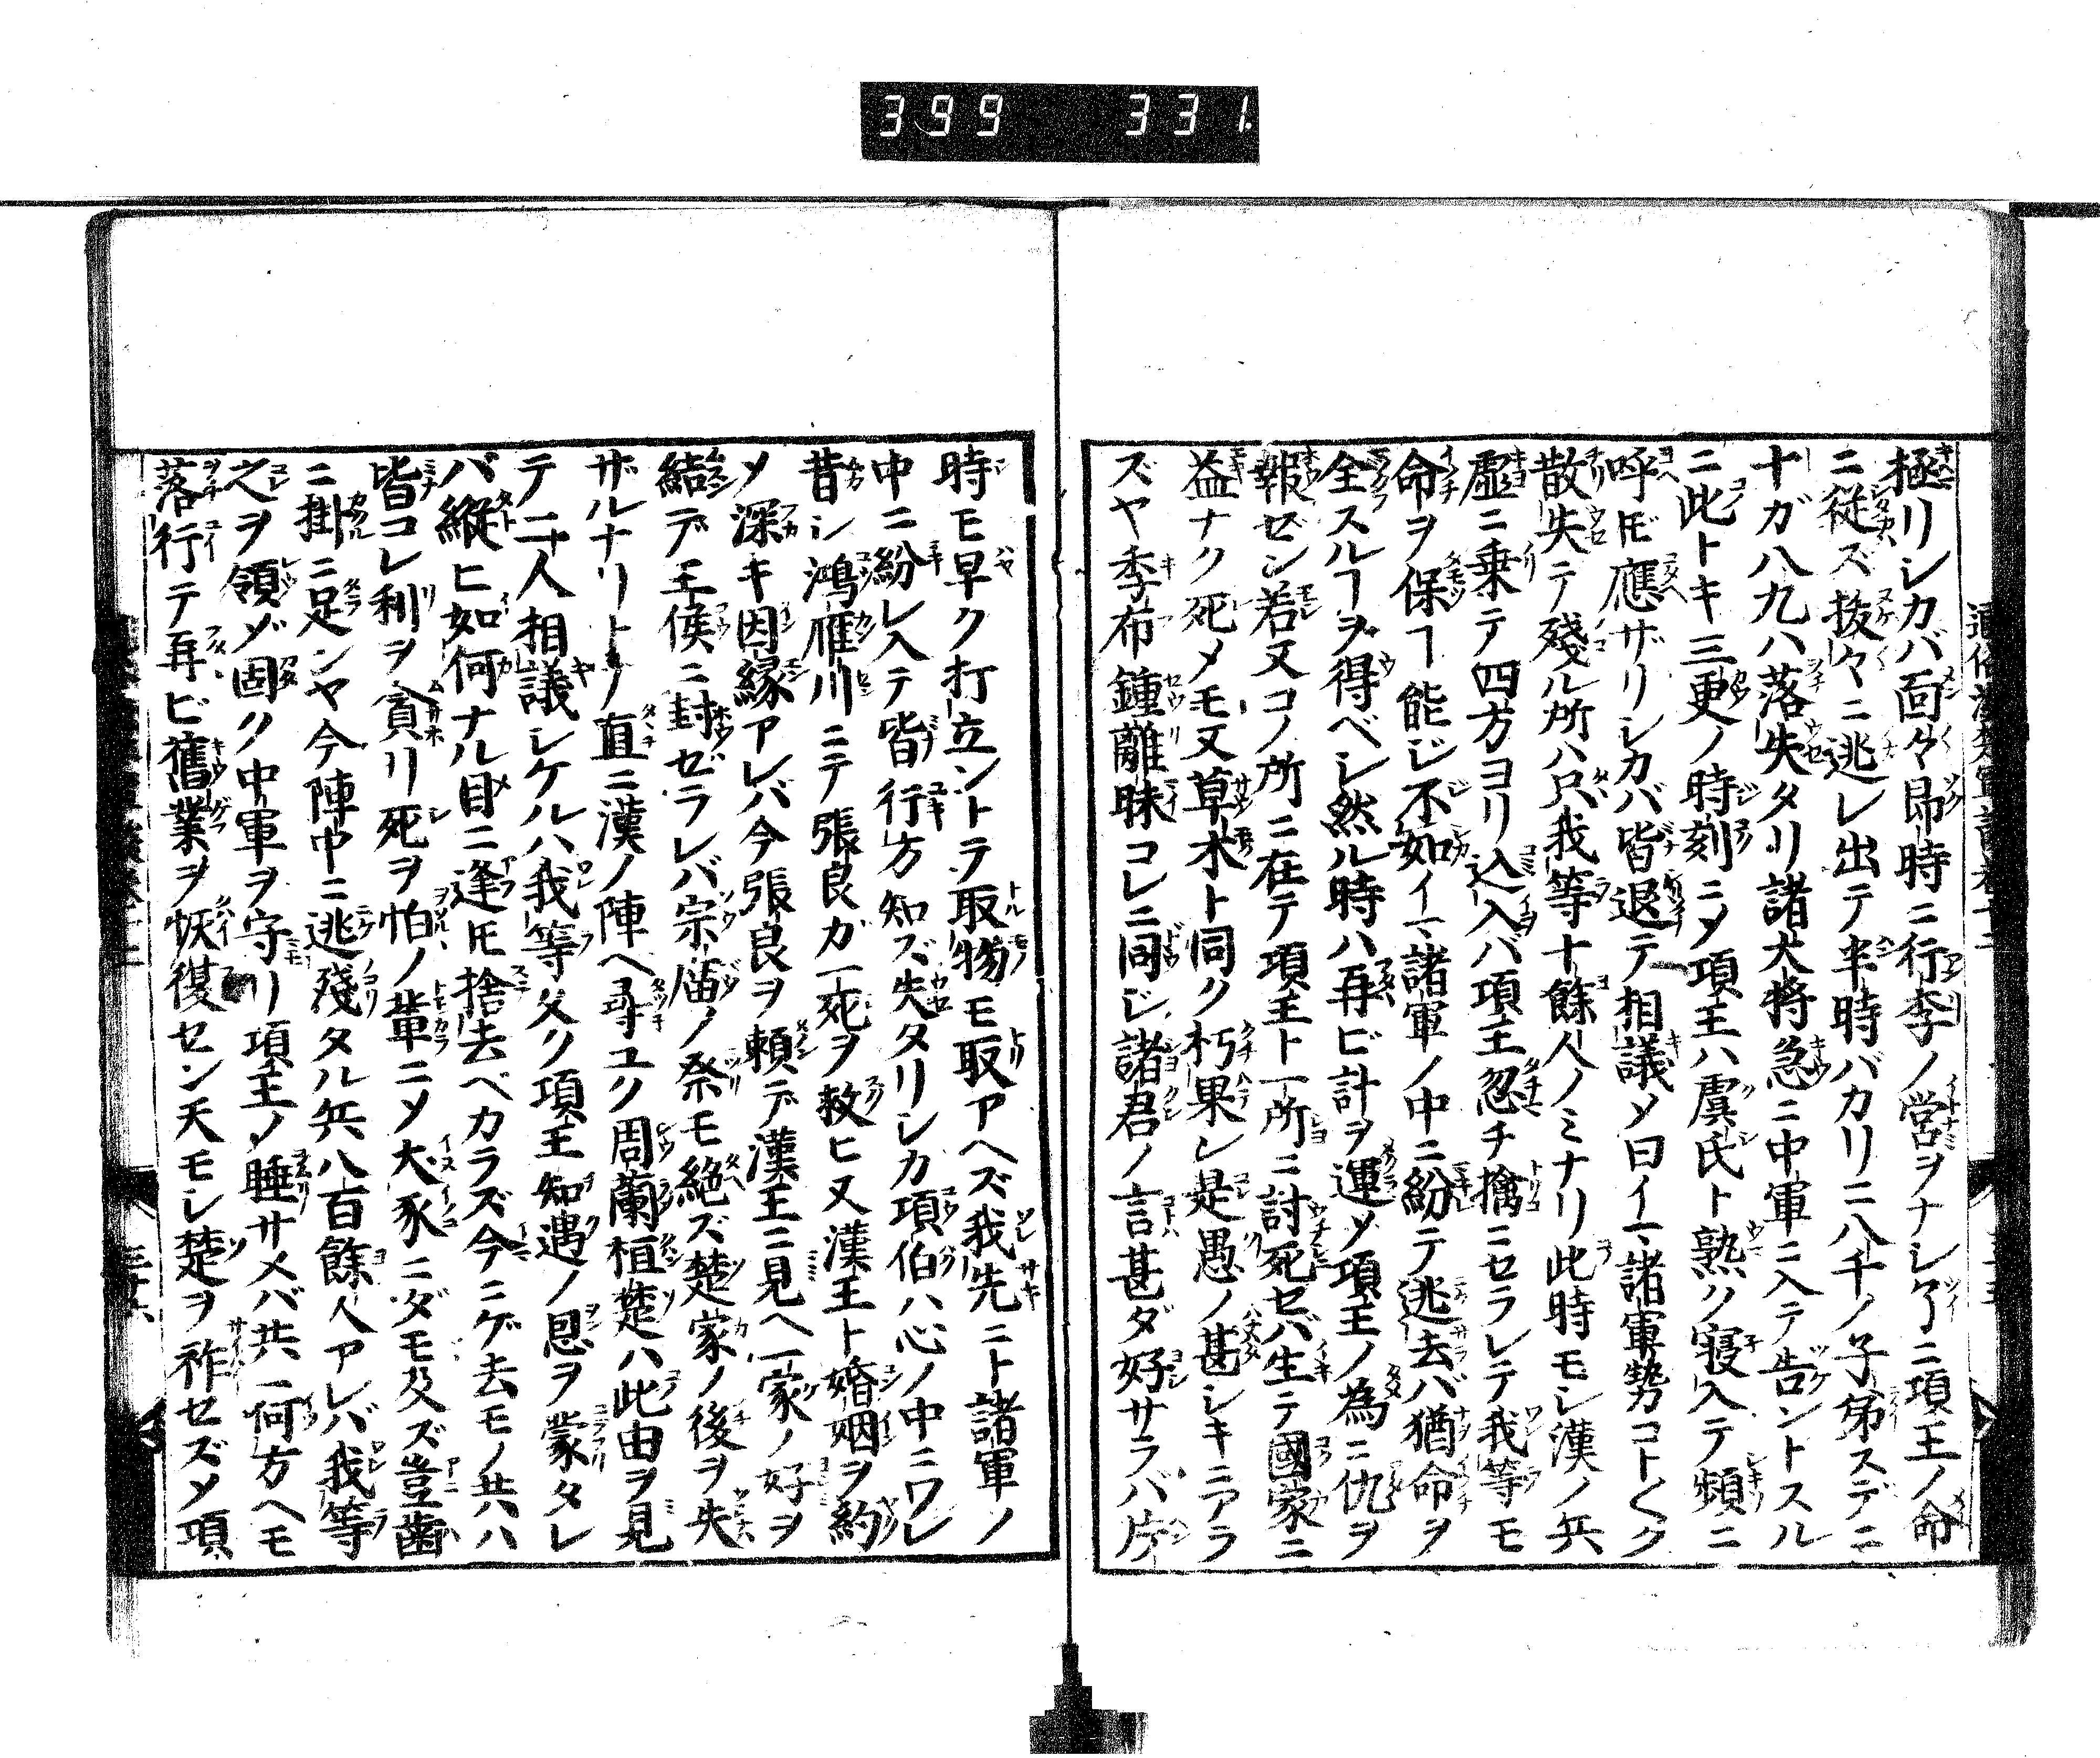 399 331.
極リシカバ面々即時ニ行李ノ営ヲナシケルニ項王ノ命
ニ従ズ抜々ニ逃レ出テ半時バカリニ八千ノ子弟スデニ
十ガ八九ハ落失タリ諸大将急ニ中軍ニ入テ告ントスル
ニ此トキ三更ノ時刻ニメ項王ハ虞氏ト熟ク寝入テ頻ニ
呼ドモ應ザリシカバ皆退テ相議メ曰イマ諸軍勢コトくク
散失テ殘ル所ハ只我等十餘人ノミナリ此時モシ漢ノ兵
虚ニ乗テ四方ヨリ込入バ項王忽チ擒ニセラレテ我等モ
命ヲ保ヿ能ジ不如イマ諸軍ノ中ニ紛テ逃去バ猶命ヲ
全スルヿヲ得ベシ然ル時ハ再ビ計ヲ運メ項王ノ為ニ仇ヲ
報ゼン若又コノ所ニ在テ項王ト一所ニ討死セバ生テ國家ニ
益ナク死メモ又草木ト同ク朽果シ是愚ノ甚シキニアラ
ズヤ季布鍾離昧コレニ同ジ諸君ノ言甚ダ好サラバ片
時モ早ク打立ントテ取物モ取アヘズ我先ニト諸軍ノ
中ニ紛レ入テ皆行方知ズ失タリシカ項伯ハ心ノ中ニワレ
昔シ鴻雁川ニテ張良ガ一死ヲ救ヒ又漢王ト婚姻ヲ約
メ深キ因縁アレバ今張良ヲ頼デ漢王ニ見ヘ一家ノ好ヲ
結デ王侯ニ封ゼラレバ宗庿ノ祭モ絶ズ楚家ノ後ヲ失
ザルナリトテ直ニ漢ノ陣ヘ尋ユク周蘭桓楚ハ此由ヲ見
テ二人相議シケルハ我等久ク項王知遇ノ恩ヲ蒙タレ
バ縦ヒ如何ナル目ニ逢トモ捨去ベカラズ今ニゲ去モノ共ハ
皆コレ利ヲ貪リ死ヲ怕ノ輩ニメ犬豕ニダモ及ズ豈歯
ニ掛ニ足ンヤ今陣中ニ逃殘タル兵八百餘人アレバ我等
之ヲ領ゾ固ク中軍ヲ守リ項王ノ睡サメバ共ニ何方ヘモ
落行テ再ビ舊業ヲ恢復セン天モシ楚ヲ祚セズメ項